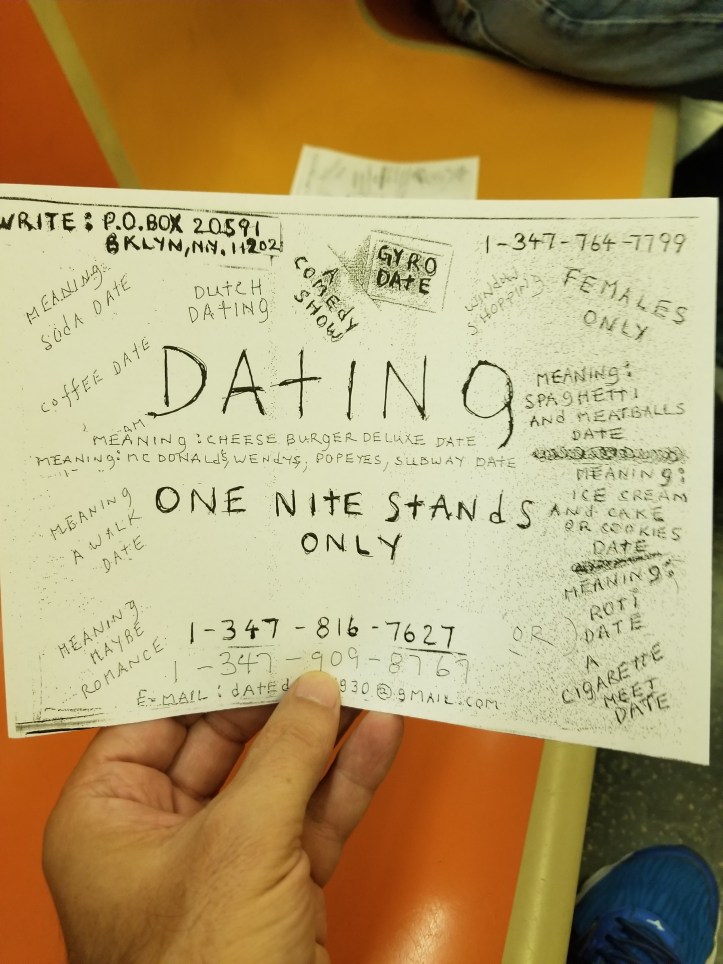 WRITE: P.O.BOX 20591
BKLYN, N.Y. 11202
1-347-764-7799
MEANING:
SODA DATE
DUTCH
DATING
A
COMEDY
SHOW
GYRO
DATE
WINDOW
SHOPPING
FEMALES
ONLY
COFFEE DATE
DATING
MEANING:
SPAGHETTI
AND MEATBALLS
DATE
MEANING: CHEESE BURGER DELUXE DATE
MEANING: MCDONALDS, WENDYS, POPEYES, SUBWAY DATE
MEANING:
ICE CREAM
AND CAKE
OR COOKIES
DATE
MEANING
A WALK
DATE
ONE NITE STANDS
ONLY
MEANING:
ROTI
DATE
MEANING
MAYBE
ROMANCE
1-347-816-7627
OR
1-347-909-8767
A
CIGARETTE
MEET
DATE
E-MAIL: dated 930@gmail.com